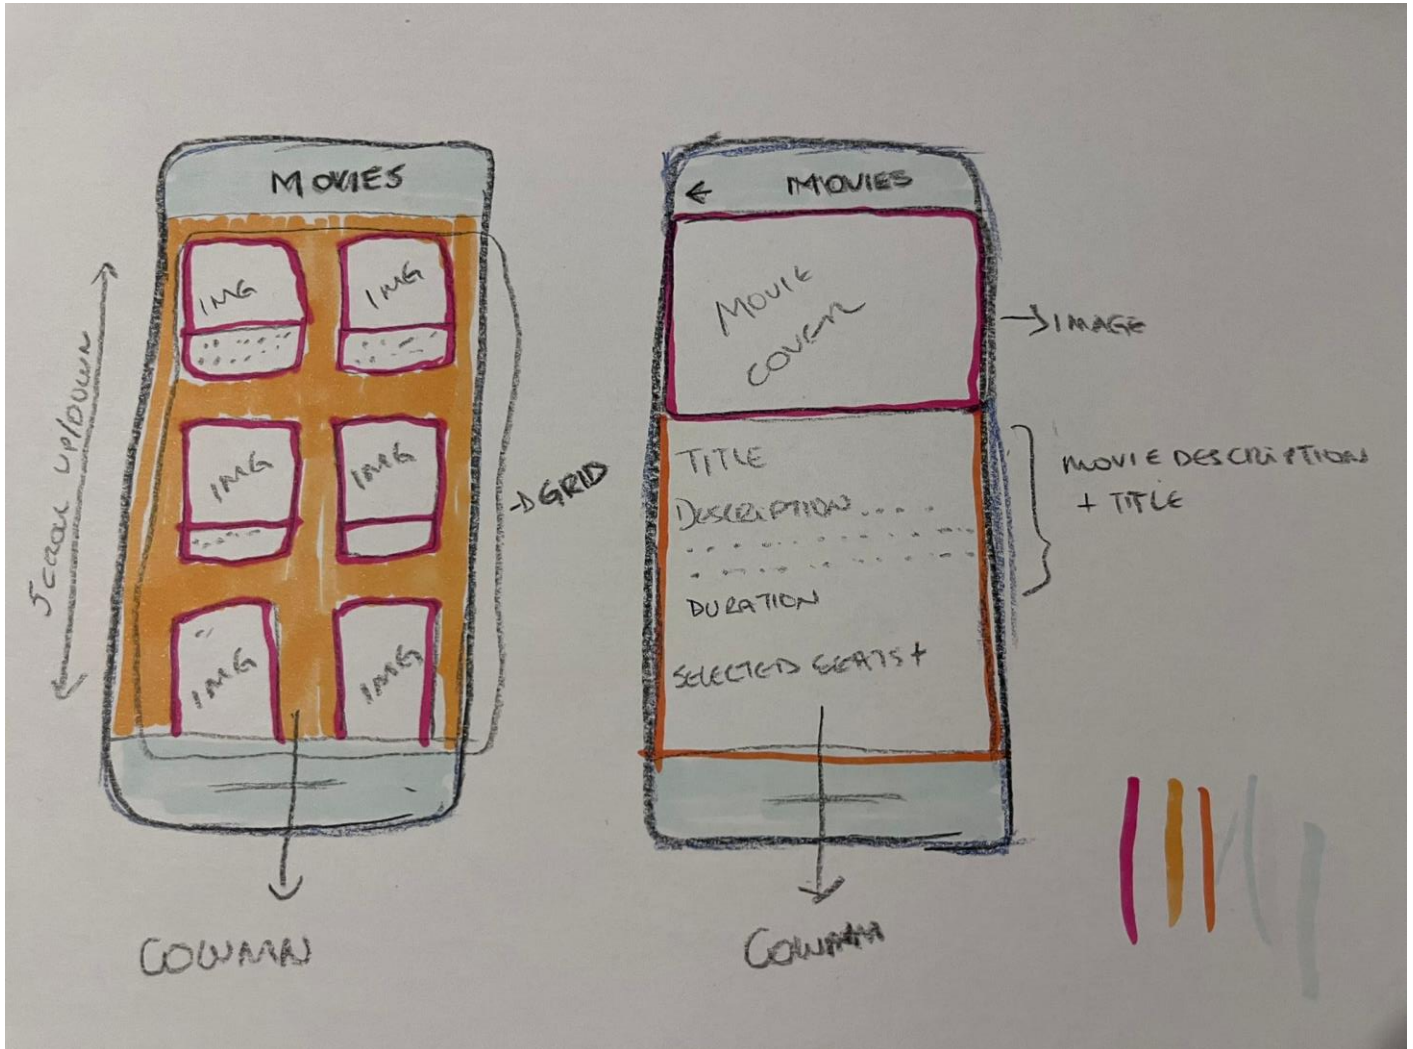 MOVIES
IMG
IMG
IMG
IMG
IMG
IMG
SCROLL UP/DOWN
GRID
COLUMN
← MOVIES
MOVIE
COVER
IMAGE
TITLE
DESCRIPTION....
DURATION
SELECTED SEATS +
MOVIE DESCRIPTION
+ TITLE
COLUMN